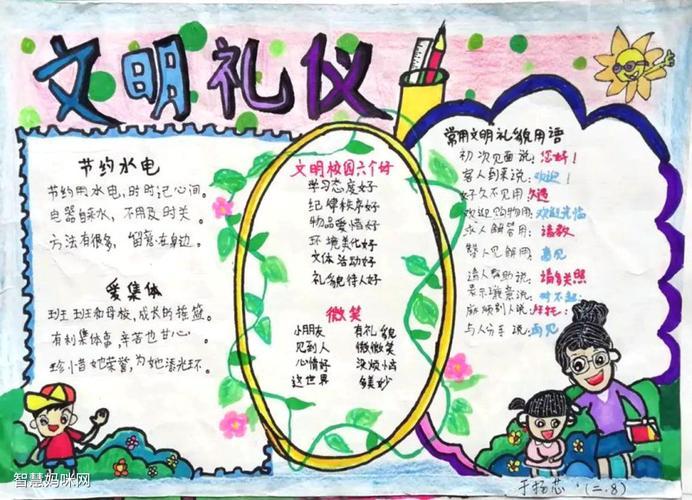 文明礼仪
节约水电
节约用水电,时时记心间。
电器自来水,不用及时关。
方法有很多,留意在身边。
爱集体
班班班和母校,成长的摇篮。
有利集体事,辛苦也甘心。
珍惜她荣誉,为她添光环。
文明校园六个好
学习态度好
纪律秩序好
物品爱惜好
环境美化好
文体活动好
礼貌待人好
微笑
小朋友 有礼貌
见到人 微微笑
心情好 没烦恼
这世界 多美妙
常用文明礼貌用语
初次见面说:您好!
客人到来说:欢迎!
好久不见用久违
欢迎购物用:欢迎光临
求人解答用:请教
请人帮助说:请多关照
表示歉意说:对不起!
麻烦别人说:拜托!
与人分手说:再见
于扬芯·(二.8)
智慧妈咪网